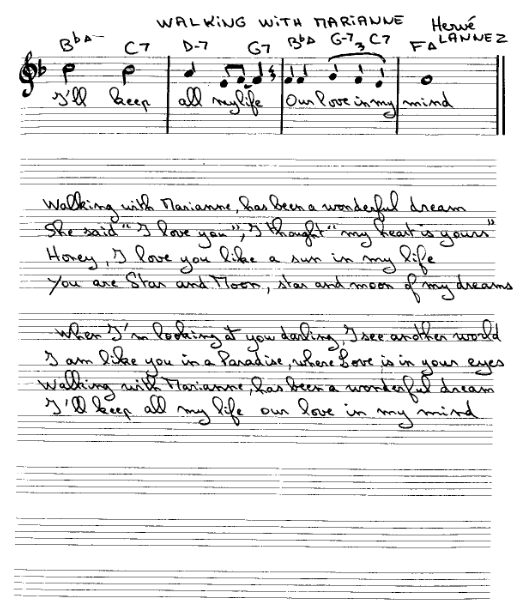 WALKING WITH MARIANNE
Hervé LANNEZ
BbΔ C7 D-7 G7 BbΔ G-7 3 C7 FΔ
I'll keep all my life Our love in my mind
Walking with Marianne, has been a wonderful dream
She said "I love you", I thought "my heart is yours"
Honey, I love you like a sun in my life
You are Star and Moon, star and moon of my dreams
When I'm looking at you darling, I see another world
I am like you in a Paradise, where Love is in your eyes
Walking with Marianne, has been a wonderful dream
I'll keep all my life our love in my mind